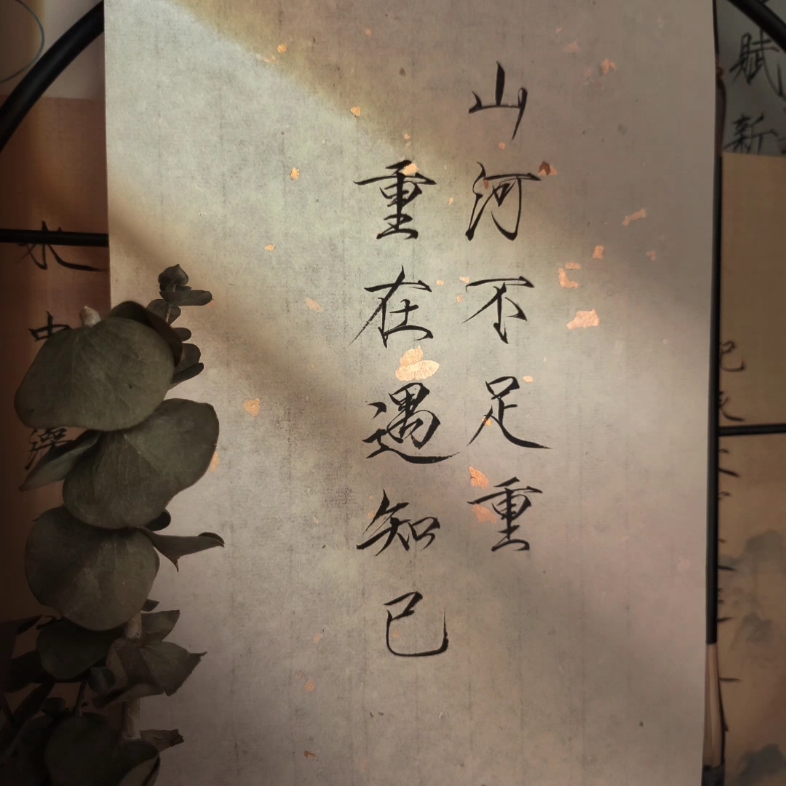 山河不足重
重在遇知己
賦
新
水
中